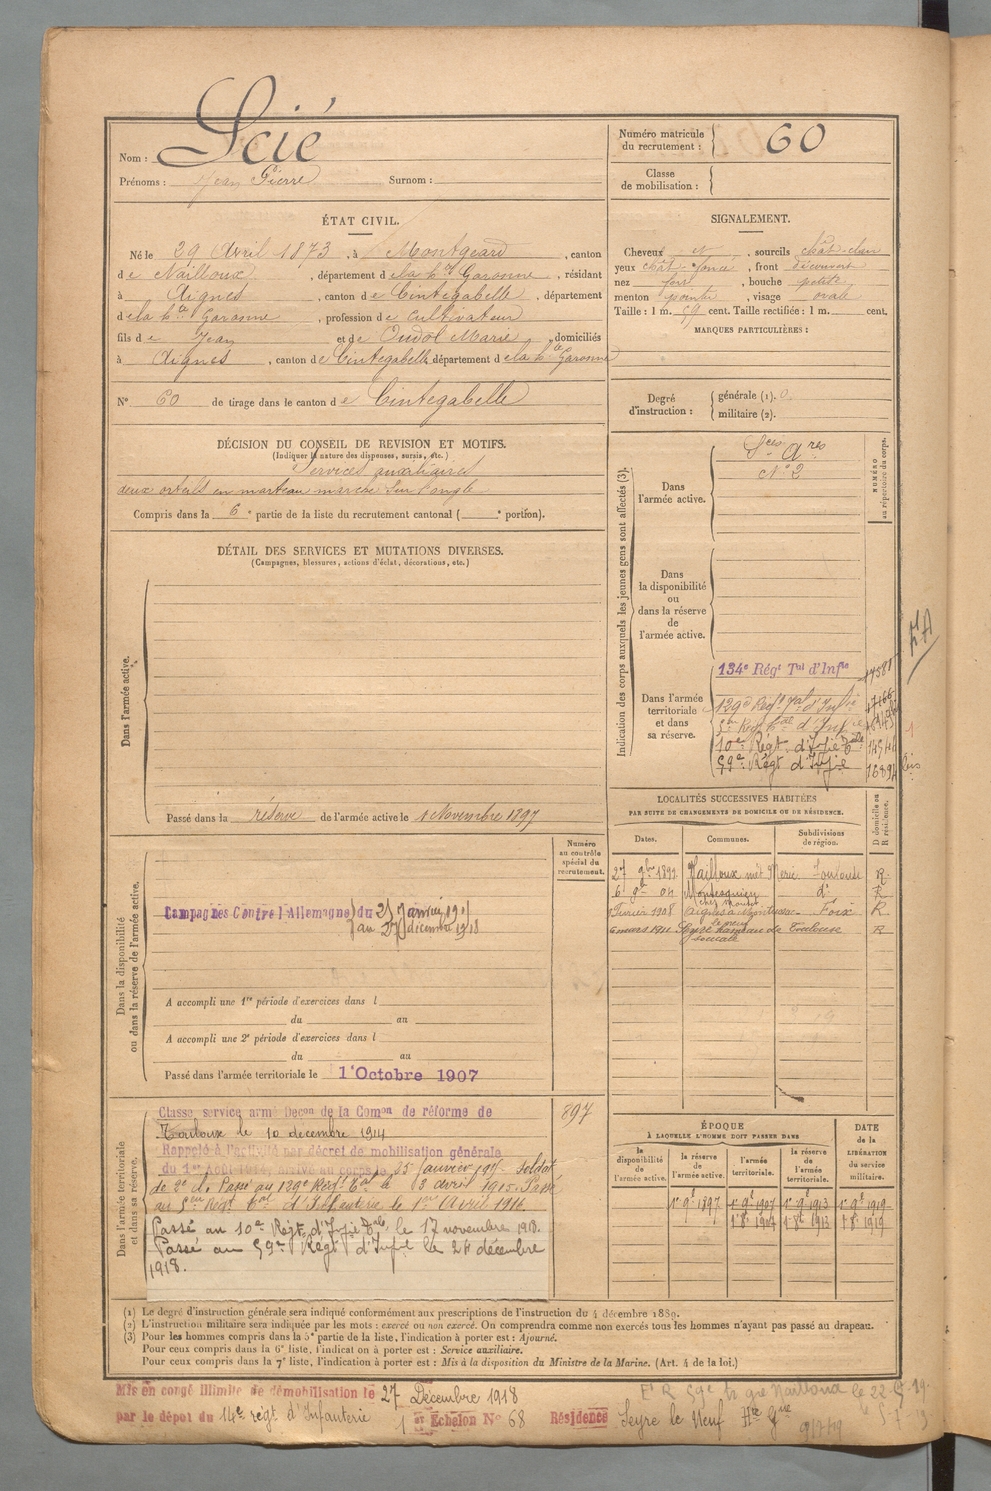 Nom : Scié
Prénoms : Jean Pierre Surnom :
Numéro matricule du recrutement : 60
Classe de mobilisation :
ÉTAT CIVIL.
Né le 29 Avril 1873, à Montgeard, canton
de Nailloux, département de la Hte Garonne, résidant
à Aignes, canton de Cintegabelle, département
de la Hte Garonne, profession de cultivateur
fils de Jean et de Oudol Marie, domiciliés
à Aignes, canton de Cintegabelle, département de la Hte Garonne
N° 60 de tirage dans le canton de Cintegabelle
DÉCISION DU CONSEIL DE REVISION ET MOTIFS.
(Indiquer la nature des dispenses, sursis, etc.)
Services auxiliaires
deux orteils en marteau marche sur l'ongle
Compris dans la 6e partie de la liste du recrutement cantonal ( e portion).
SIGNALEMENT.
Cheveux N, sourcils chât-clair
yeux chât foncé, front découvert
nez fort, bouche petite
menton pointu, visage ovale
Taille : 1 m. 59 cent. Taille rectifiée : 1 m. cent.
MARQUES PARTICULIÈRES :
Degré d'instruction : générale (1). 0.
militaire (2).
DÉTAIL DES SERVICES ET MUTATIONS DIVERSES.
(Campagnes, blessures, actions d'éclat, décorations, etc.)
Dans l'armée active.
Passé dans la réserve de l'armée active le 1 Novembre 1897
Indication des corps auxquels les jeunes gens sont affectés (3).
NUMÉRO au répertoire du corps.
Dans l'armée active.
Sces Ares
N° 2
Dans la disponibilité ou dans la réserve de l'armée active.
Dans l'armée territoriale et dans sa réserve.
134e Régt Tal d'Infie 17581
129e Régt Tal d'Infie
5me Régt Tal d'Infie
10e Régt d'Infie Tale
59e Régt d'Infie bis
LOCALITÉS SUCCESSIVES HABITÉES
PAR SUITE DE CHANGEMENTS DE DOMICILE OU DE RÉSIDENCE.
Dates. Communes. Subdivisions de région. D domicile ou R résidence.
27 9bre 1899 Nailloux Toulouse R.
04 Montesquieu d° R
Février 1908 Foix R.
6 mars 1911 Seyre Toulouse R
Dans la disponibilité ou dans la réserve de l'armée active.
Numéro au contrôle spécial du recrutement.
Campagnes Contre l'Allemagne du 25 janvier 1915
au 27 décembre 1918
A accompli une 1re période d'exercices dans l
du au
A accompli une 2e période d'exercices dans l
du au
Passé dans l'armée territoriale le 1er Octobre 1907
Dans l'armée territoriale et dans sa réserve.
897
Classe service armé Decon de la Comon de réforme de
Toulouse le 10 décembre 1914
Rappelé à l'activité par décret de mobilisation générale
du 1er Août 1914, arrivé au corps le 25 janvier 1915 soldat
de 2e cl. Passé au 129e Régt Tal le 3 avril 1915. Passé
au 5me Régt Tal d'Infanterie le 1er Avril 1916.
Passé au 10e Régt d'Infie Tale le 17 novembre 1918.
Passé au 59e Régt d'Infie le 24 décembre
1918.
ÉPOQUE
À LAQUELLE L'HOMME DOIT PASSER DANS
la disponibilité de l'armée active. la réserve de l'armée active. l'armée territoriale. la réserve de l'armée territoriale.
DATE de la LIBÉRATION du service militaire.
1er 9bre 1897 1er 9bre 1907 1er 9bre 1913 1er 9bre 1919
1er 8bre 1907 1er 8bre 1913 1er 8bre 1919
(1) Le degré d'instruction générale sera indiqué conformément aux prescriptions de l'instruction du 4 décembre 1889.
(2) L'instruction militaire sera indiquée par les mots : exercé ou non exercé. On comprendra comme non exercés tous les hommes n'ayant pas passé au drapeau.
(3) Pour les hommes compris dans la 5e partie de la liste, l'indication à porter est : Ajourné.
Pour ceux compris dans la 6e liste, l'indication à porter est : Service auxiliaire.
Pour ceux compris dans la 7e liste, l'indication à porter est : Mis à la disposition du Ministre de la Marine. (Art. 4 de la loi.)
Mis en congé illimité de démobilisation le 27 Décembre 1918
par le dépôt du 14e régt d'Infanterie 1er Echelon N° 68 Résidence Seyre le Neuf Hte Gne